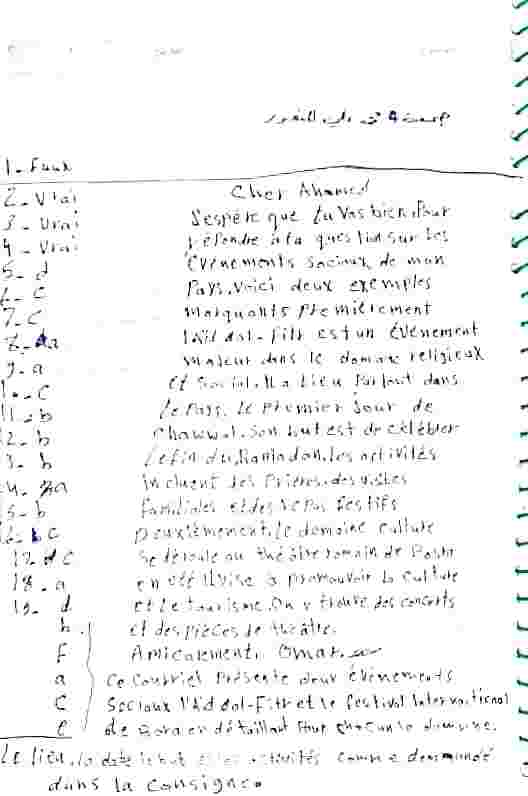 1 - Faux
2 - Vrai
3 - Vrai
4 - Vrai
5 - d
6 - c
7 - c
8 - a
9 - a
10 - c
11 - b
12 - b
3 - b
4 - a
5 - b
c
c
18 - a
19 - d
h
F
a
C
e
Cher Ahamed
J'espère que tu vas bien. Pour
répondre à ta question sur les
événements sociaux de mon
Pays. voici deux exemples
marquants Premièrement
l'Aïd al-Fitr est un événement
majeur dans le domaine religieux
et social. Il a lieu Partout dans
le Pays. le Premier Jour de
Chawwal. son but est de célébrer
la fin du Ramadan. les activités
incluent des Prières. des visites
familiales et des repas festifs
Deuxièmement. le domaine culture
se déroule au théâtre romain de
en été Il vise à promouvoir la culture
et le tourisme. On y trouve des concerts
et des pièces de théâtre.
Amicalement. Omar.
Ce courriel Présente deux événements
Sociaux l'Aïd al-Fitr et le festival International
de en détaillant Pour chacun le domaine.
Le lieu. la date le but et les activités comme demandé
dans la consigne.